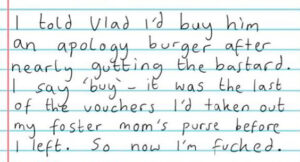 I told Vlad I'd buy him
an apology burger after
nearly gutting the bastard.
I say 'buy' – it was the last
of the vouchers I'd taken out
my foster mom's purse before
I left. So now I'm fucked.